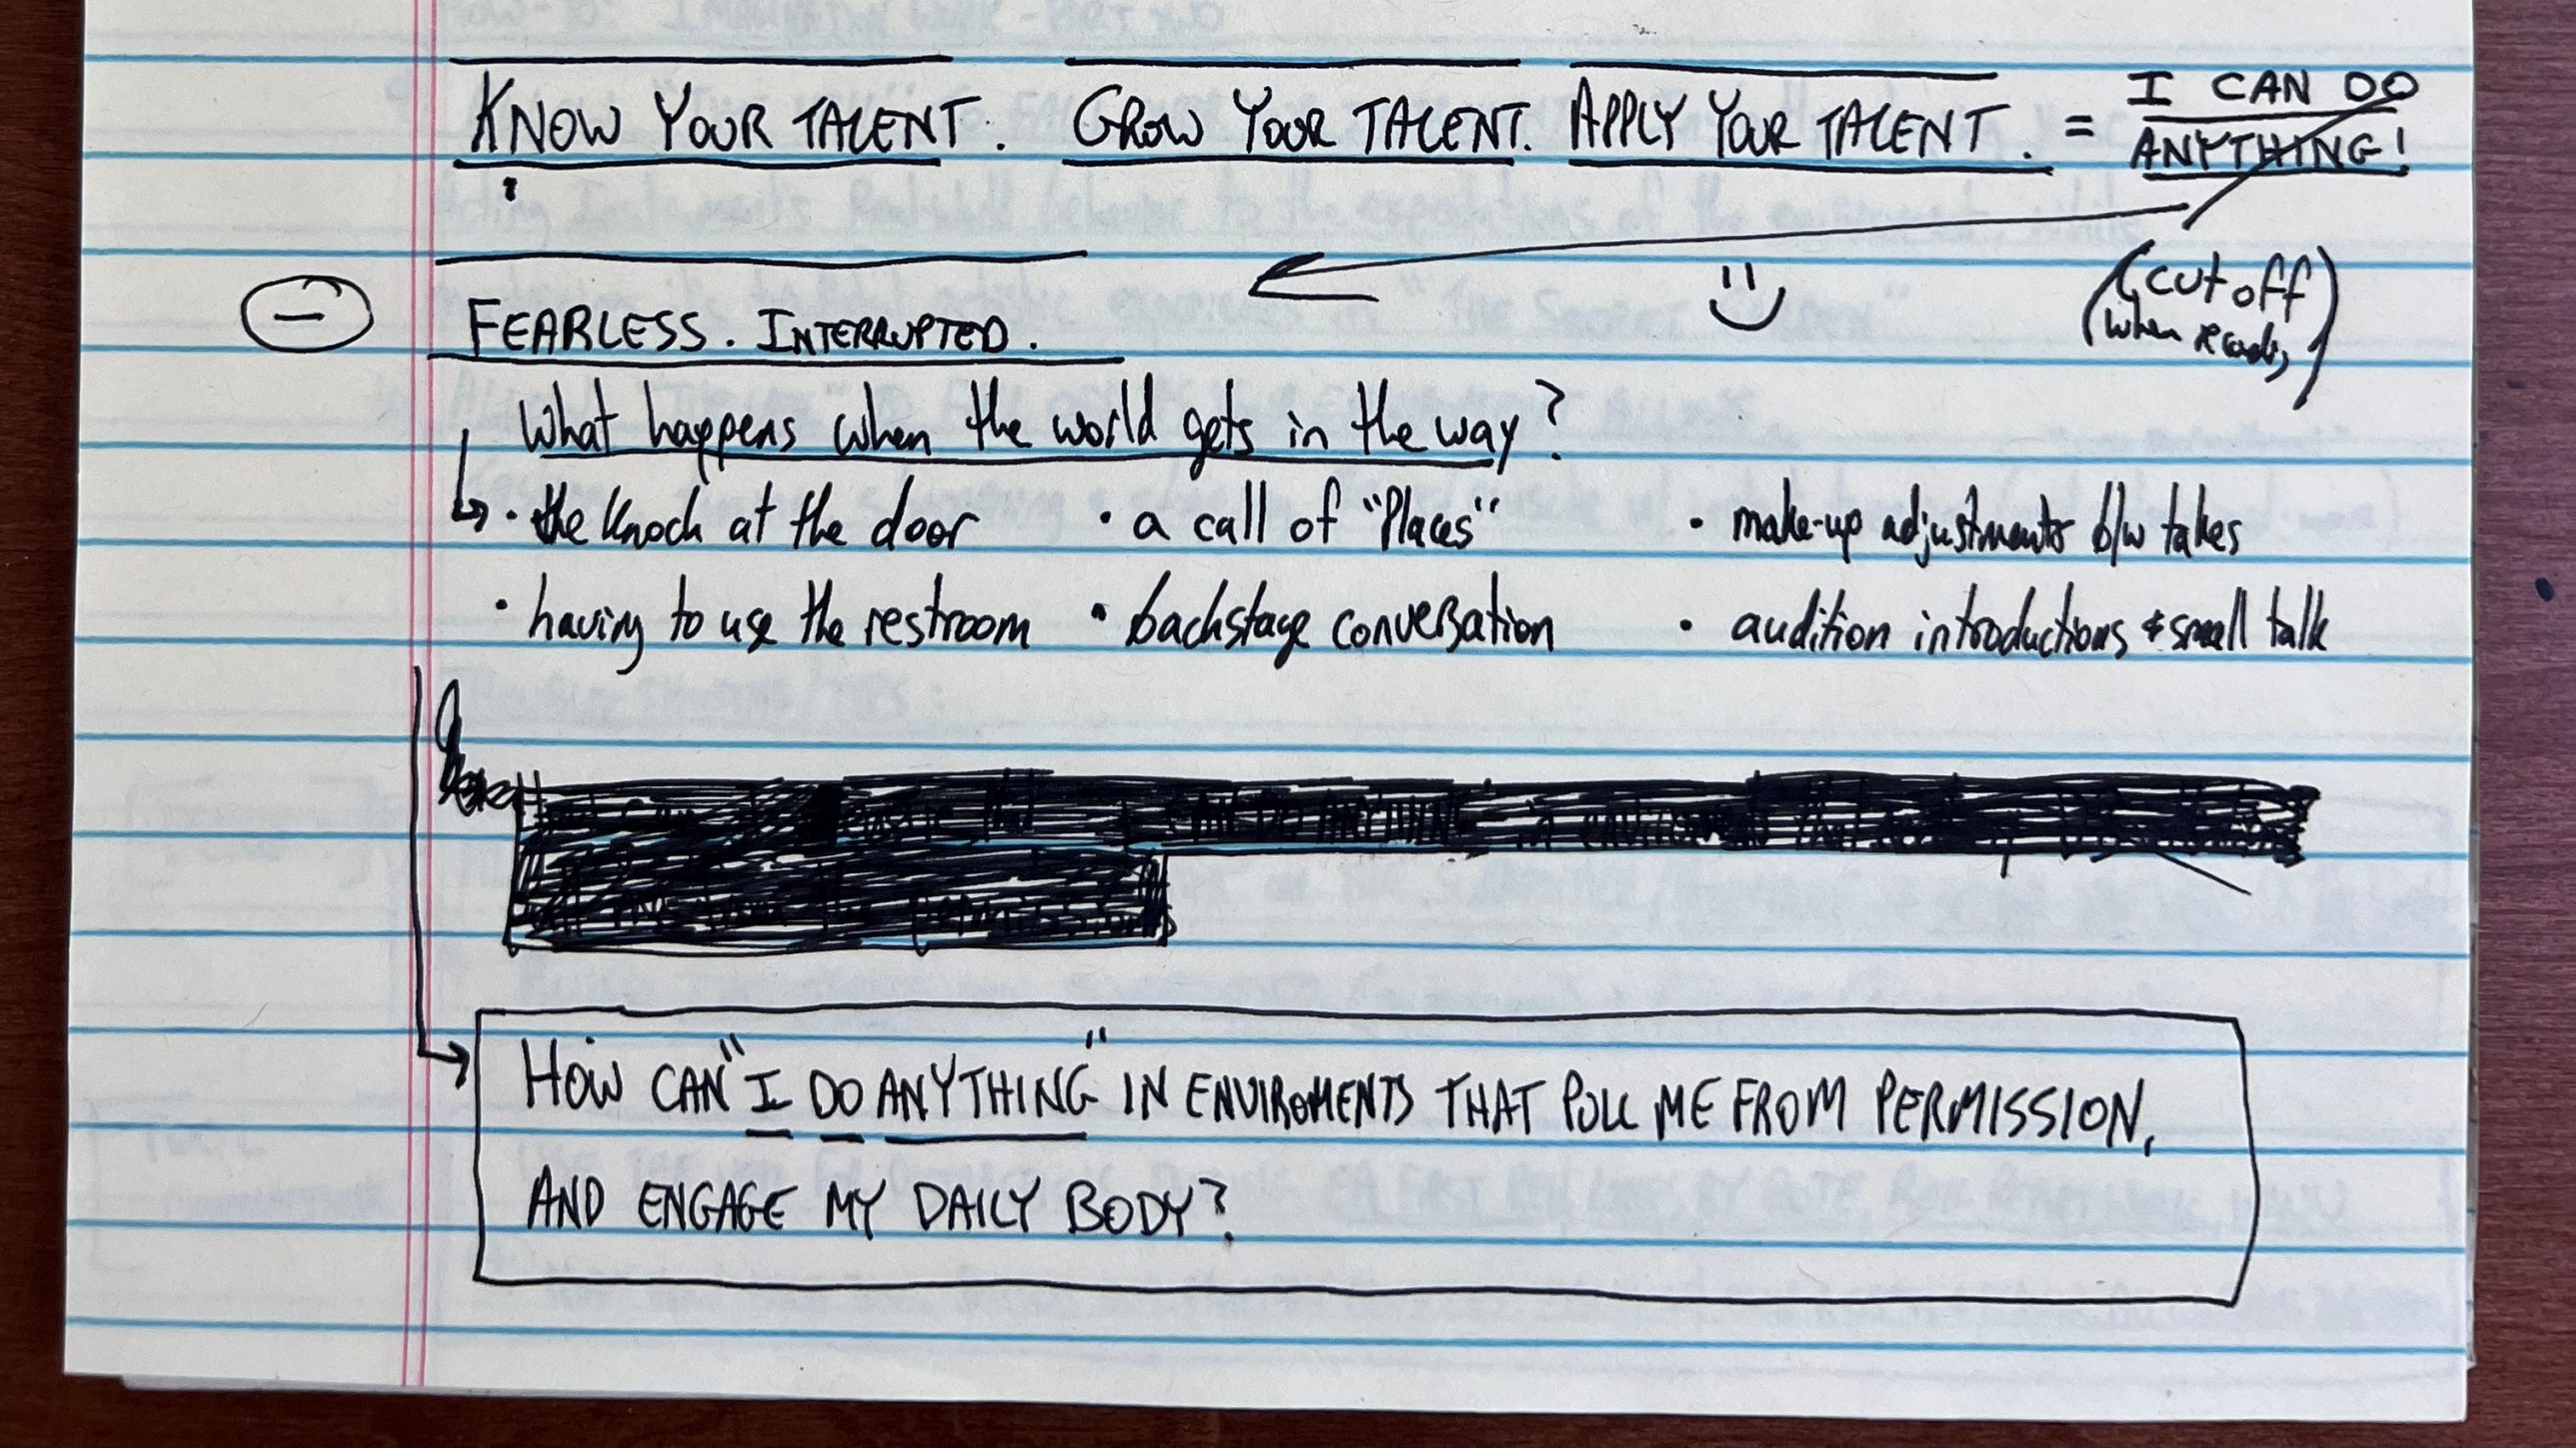 KNOW YOUR TALENT. GROW YOUR TALENT. APPLY YOUR TALENT. = I CAN DO
ANYTHING!
(cut off
when )
FEARLESS. INTERRUPTED.
What happens when the world gets in the way?
• the knock at the door • a call of "Places" • make-up adjustments b/w takes
• having to use the restroom • backstage conversation • audition introductions & small talk
HOW CAN "I DO ANYTHING" IN ENVIROMENTS THAT PULL ME FROM PERMISSION,
AND ENGAGE MY DAILY BODY?